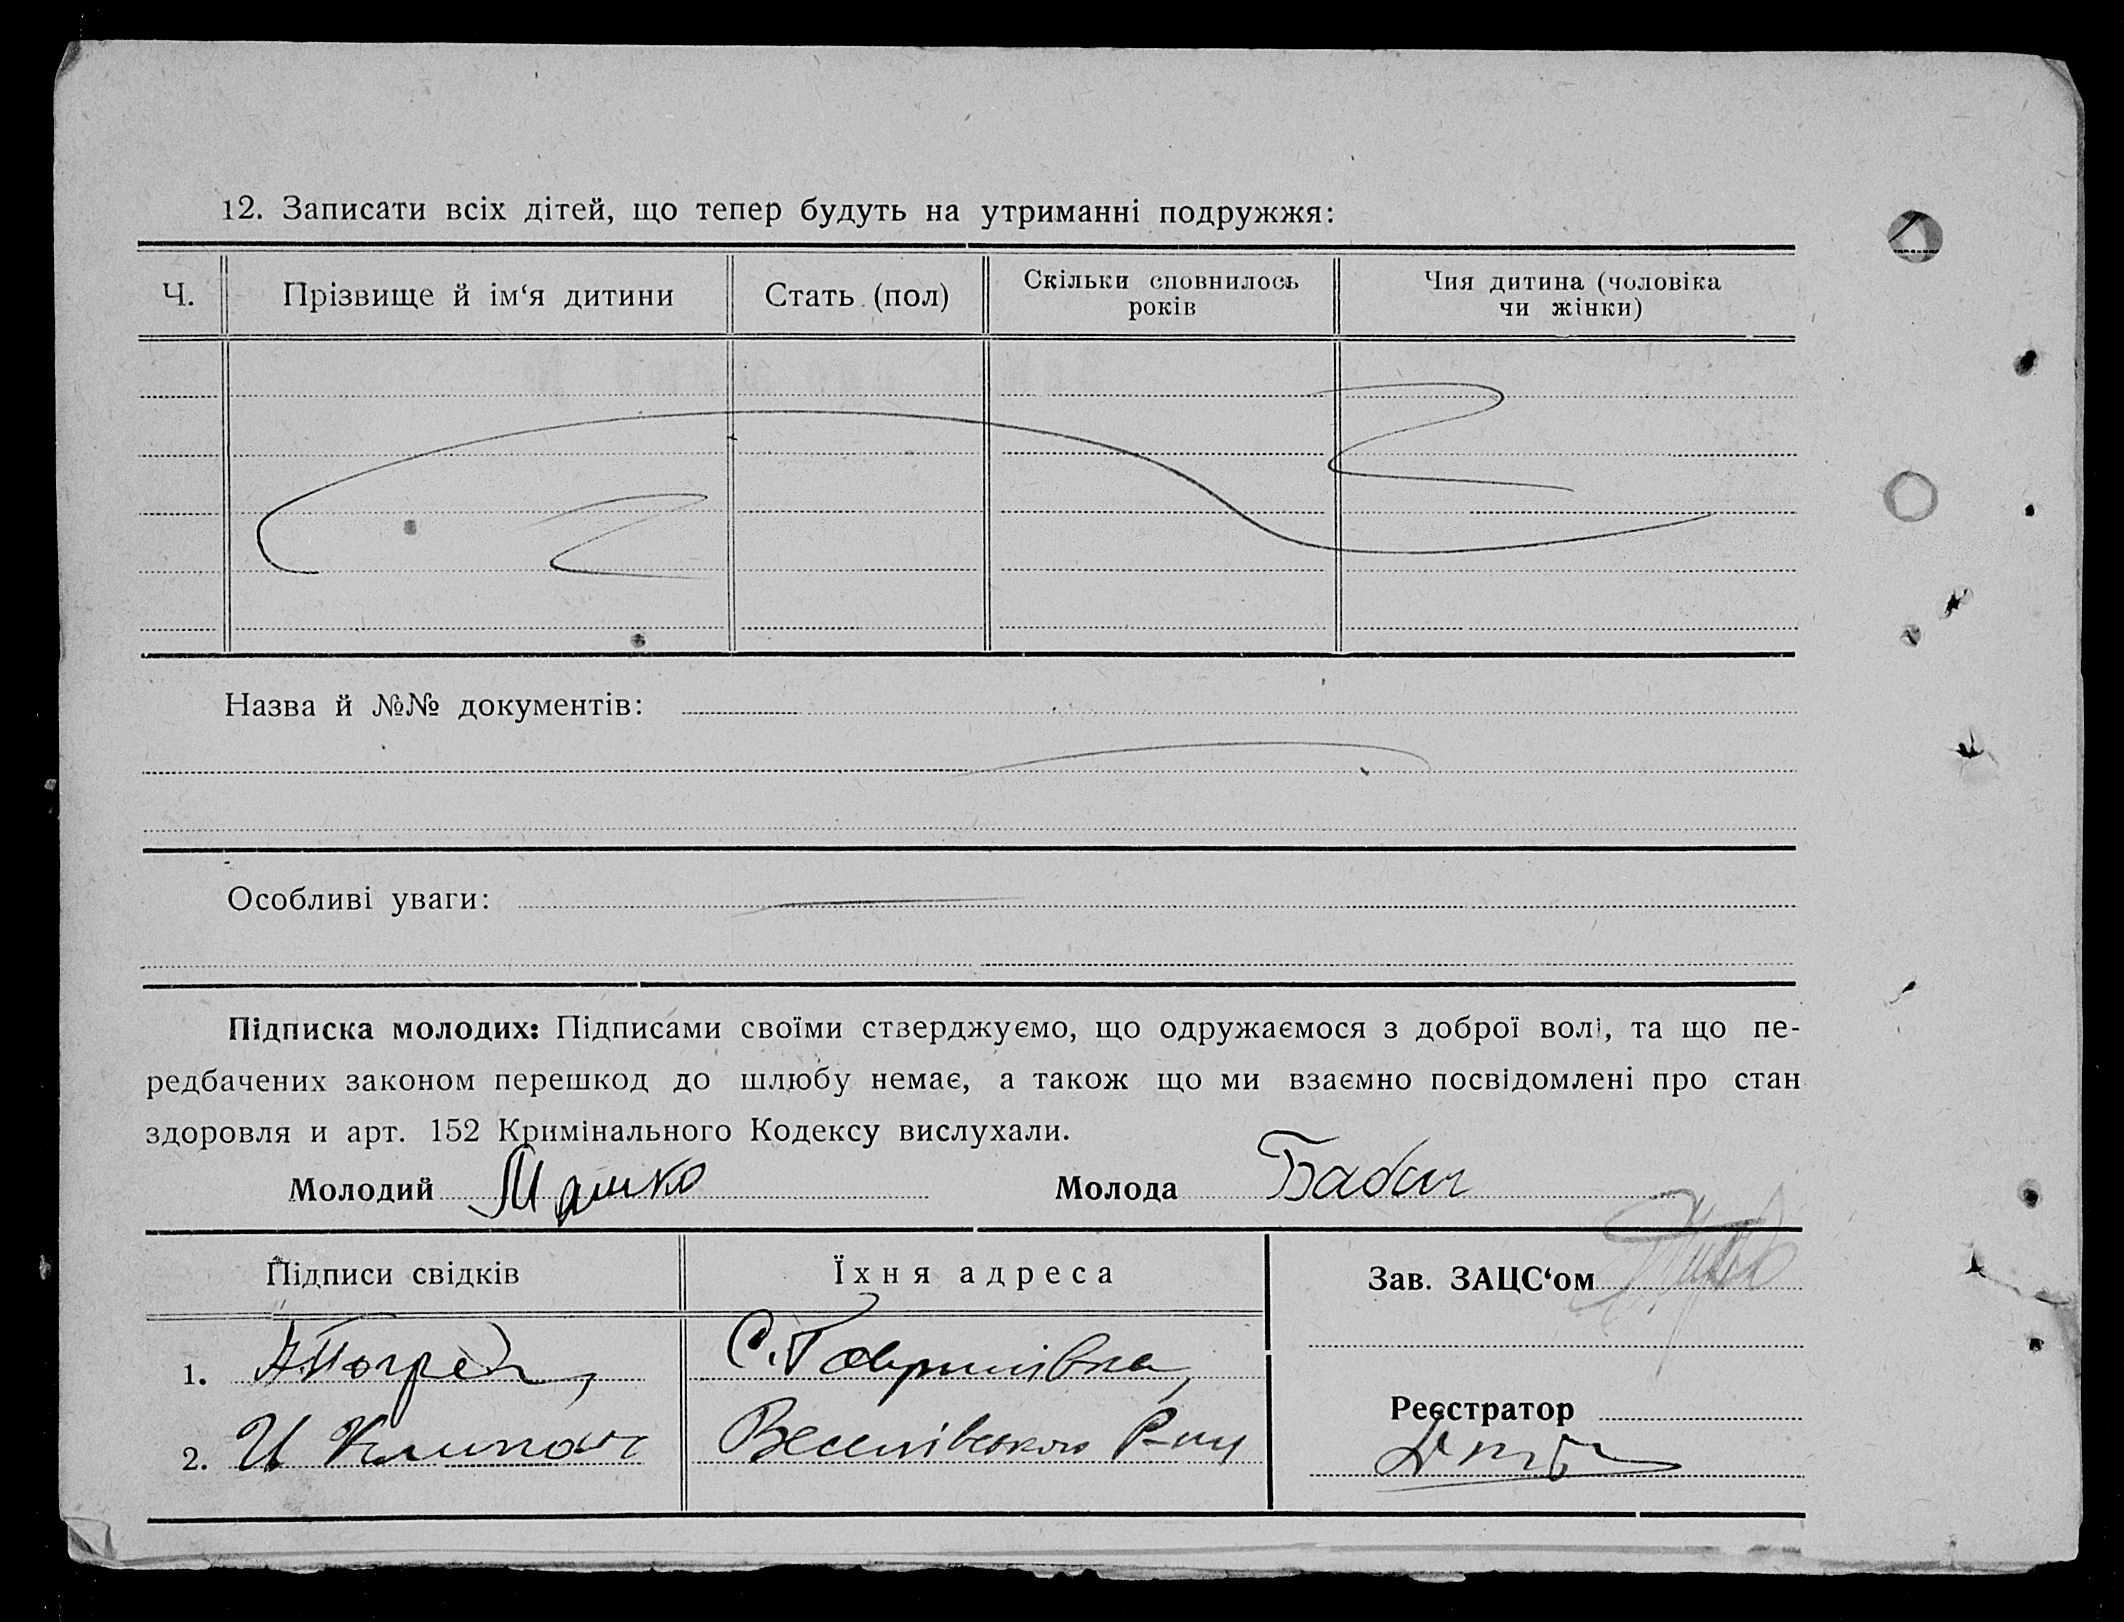 12. Записати всіх дітей, що тепер будуть на утриманні подружжя:
Ч. Прізвище й ім‘я дитини Стать (пол) Скільки сповнилось років Чия дитина (чоловіка чи жінки)
Назва й №№ документів:
Особливі уваги:
Підписка молодих: Підписами своїми стверджуємо, що одружаємося з доброї волі, та що пе-
редбачених законом перешкод до шлюбу немає, а також що ми взаємно посвідомлені про стан
здоровля и арт. 152 Кримінального Кодексу вислухали.
Молодий Машко Молода Бабич
Підписи свідків Їхня адреса Зав. ЗАЦС‘ом
1. С. Гаврилівка,
Реєстратор
2. И